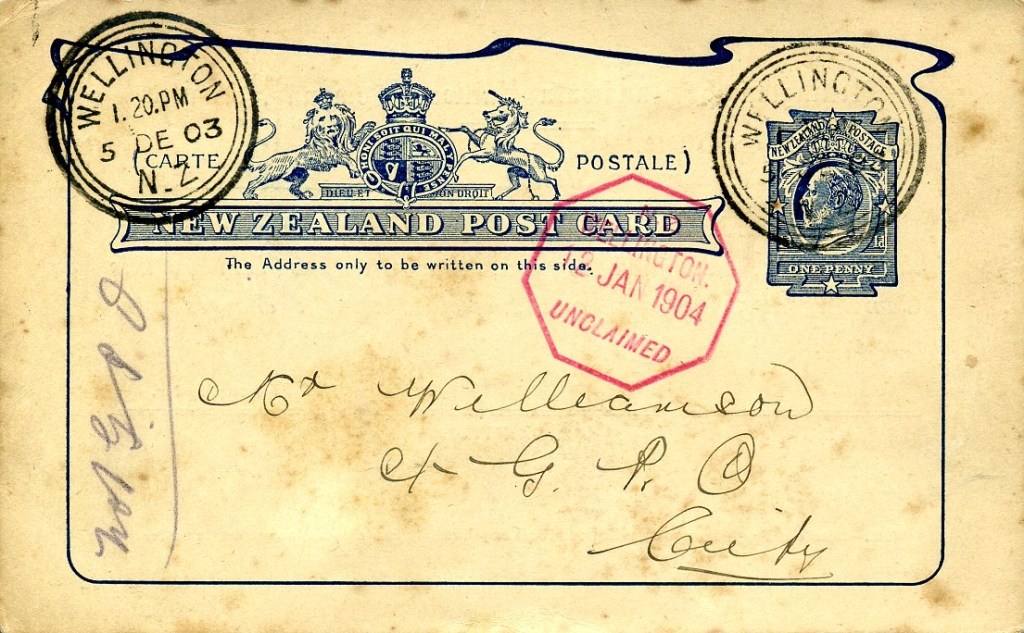 WELLINGTON
1.20.PM
5 DE 03
N.Z
(CARTE POSTALE)
HONI SOIT QUI MAL Y PENSE
DIEU ET MON DROIT
NEW ZEALAND POST CARD
The Address only to be written on this side.
WELLINGTON
NEW ZEALAND POSTAGE
1d
ONE PENNY
WELLINGTON.
12 JAN 1904
UNCLAIMED
Mr Williamson
G. P. O
City
not G.P.O